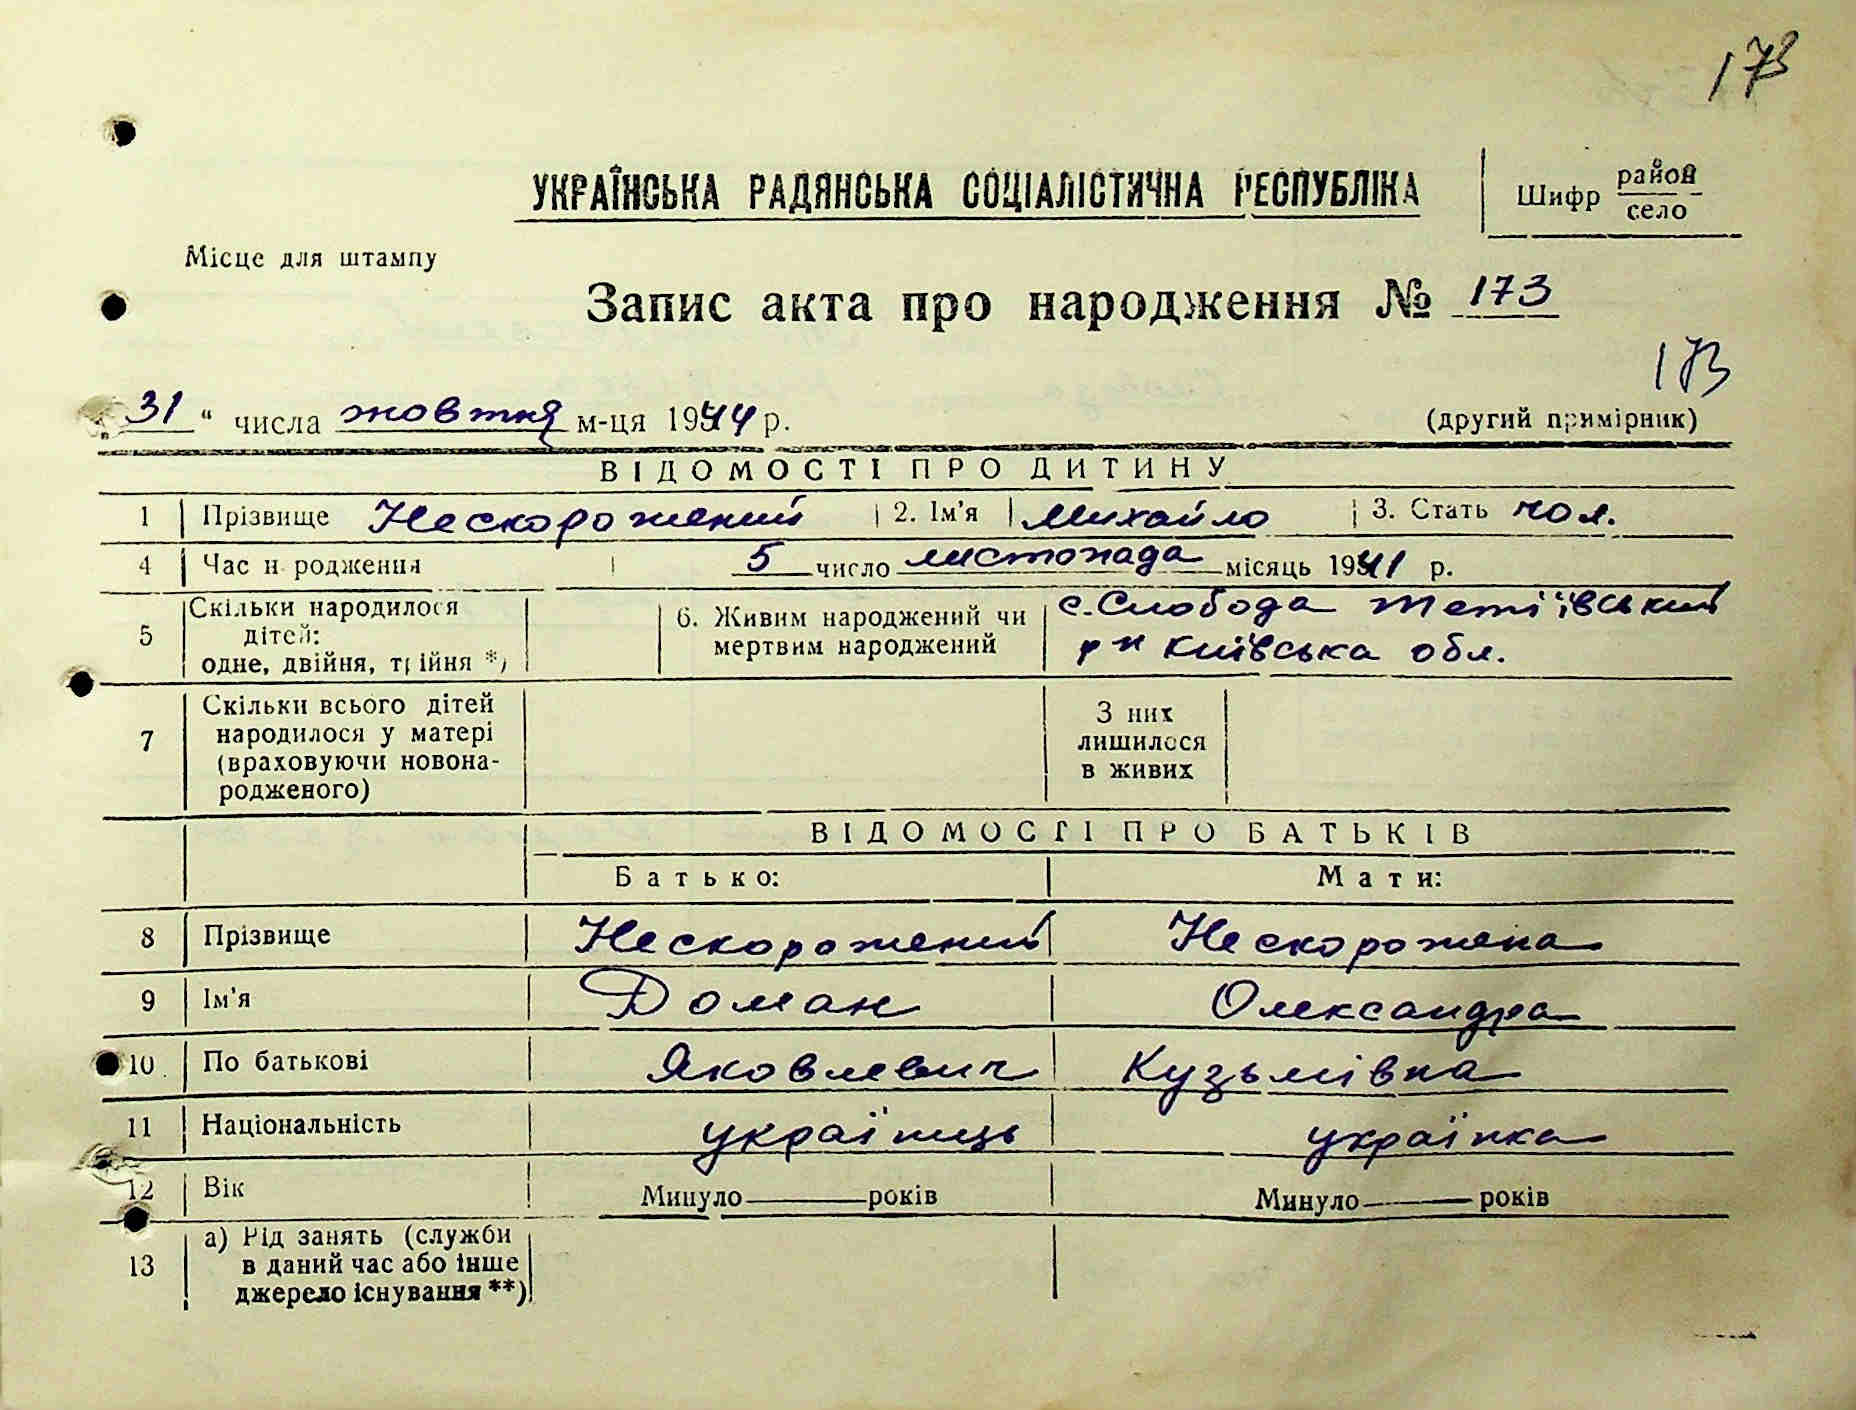 173
УКРАЇНСЬКА РАДЯНСЬКА СОЦІАЛІСТИЧНА РЕСПУБЛІКА
Шифр район
село
Місце для штампу
Запис акта про народження № 173
173
„31“ числа жовтня м-ця 1944 р.
(другий примірник)
ВІДОМОСТІ ПРО ДИТИНУ
1 Прізвище Нескорожений 2. Ім'я Михайло 3. Стать чол.
4 Час народження 5 число листопада місяць 1941 р.
5 Скільки народилося дітей: одне, двійня, трійня *) 6. Живим народжений чи мертвим народжений с. Слобода Тетіївський
р-н Київська обл.
7 Скільки всього дітей народилося у матері (враховуючи новона-родженого) З них лишилося в живих
ВІДОМОСТІ ПРО БАТЬКІВ
Батько: Мати:
8 Прізвище Нескорожений Нескорожена
9 Ім'я Доман Олександра
10 По батькові Яковлевич Кузьмівна
11 Національність українець українка
12 Вік Минуло років Минуло років
13 а) Рід занять (служби
в даний час або інше
джерело існування **)